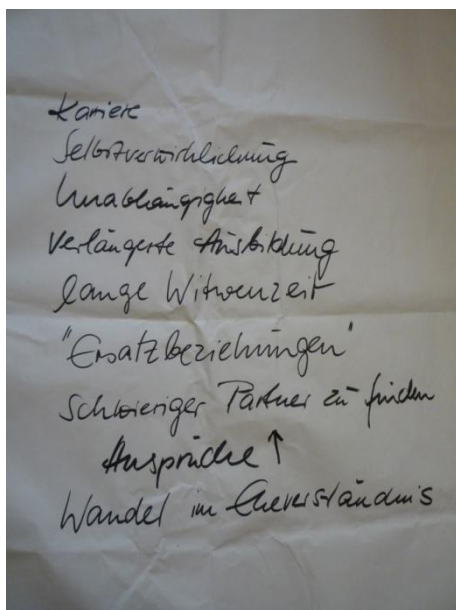 Karriere
Selbstverwirklichung
Unabhängigkeit
Verlängerte Ausbildung
lange Witwenzeit
"Ersatzbeziehungen"
Schwieriger Partner zu finden
Ansprüche ↑
Wandel im Eheverständnis